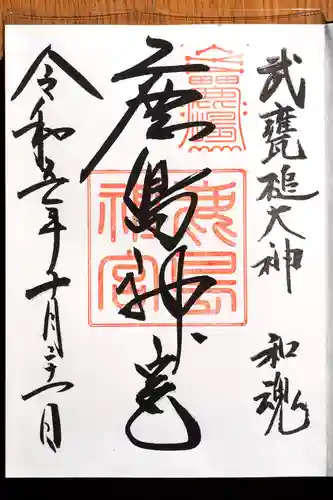 武甕槌大神
和魂
鹿島神宮
鹿島
神宮
令和五年十月二十一日